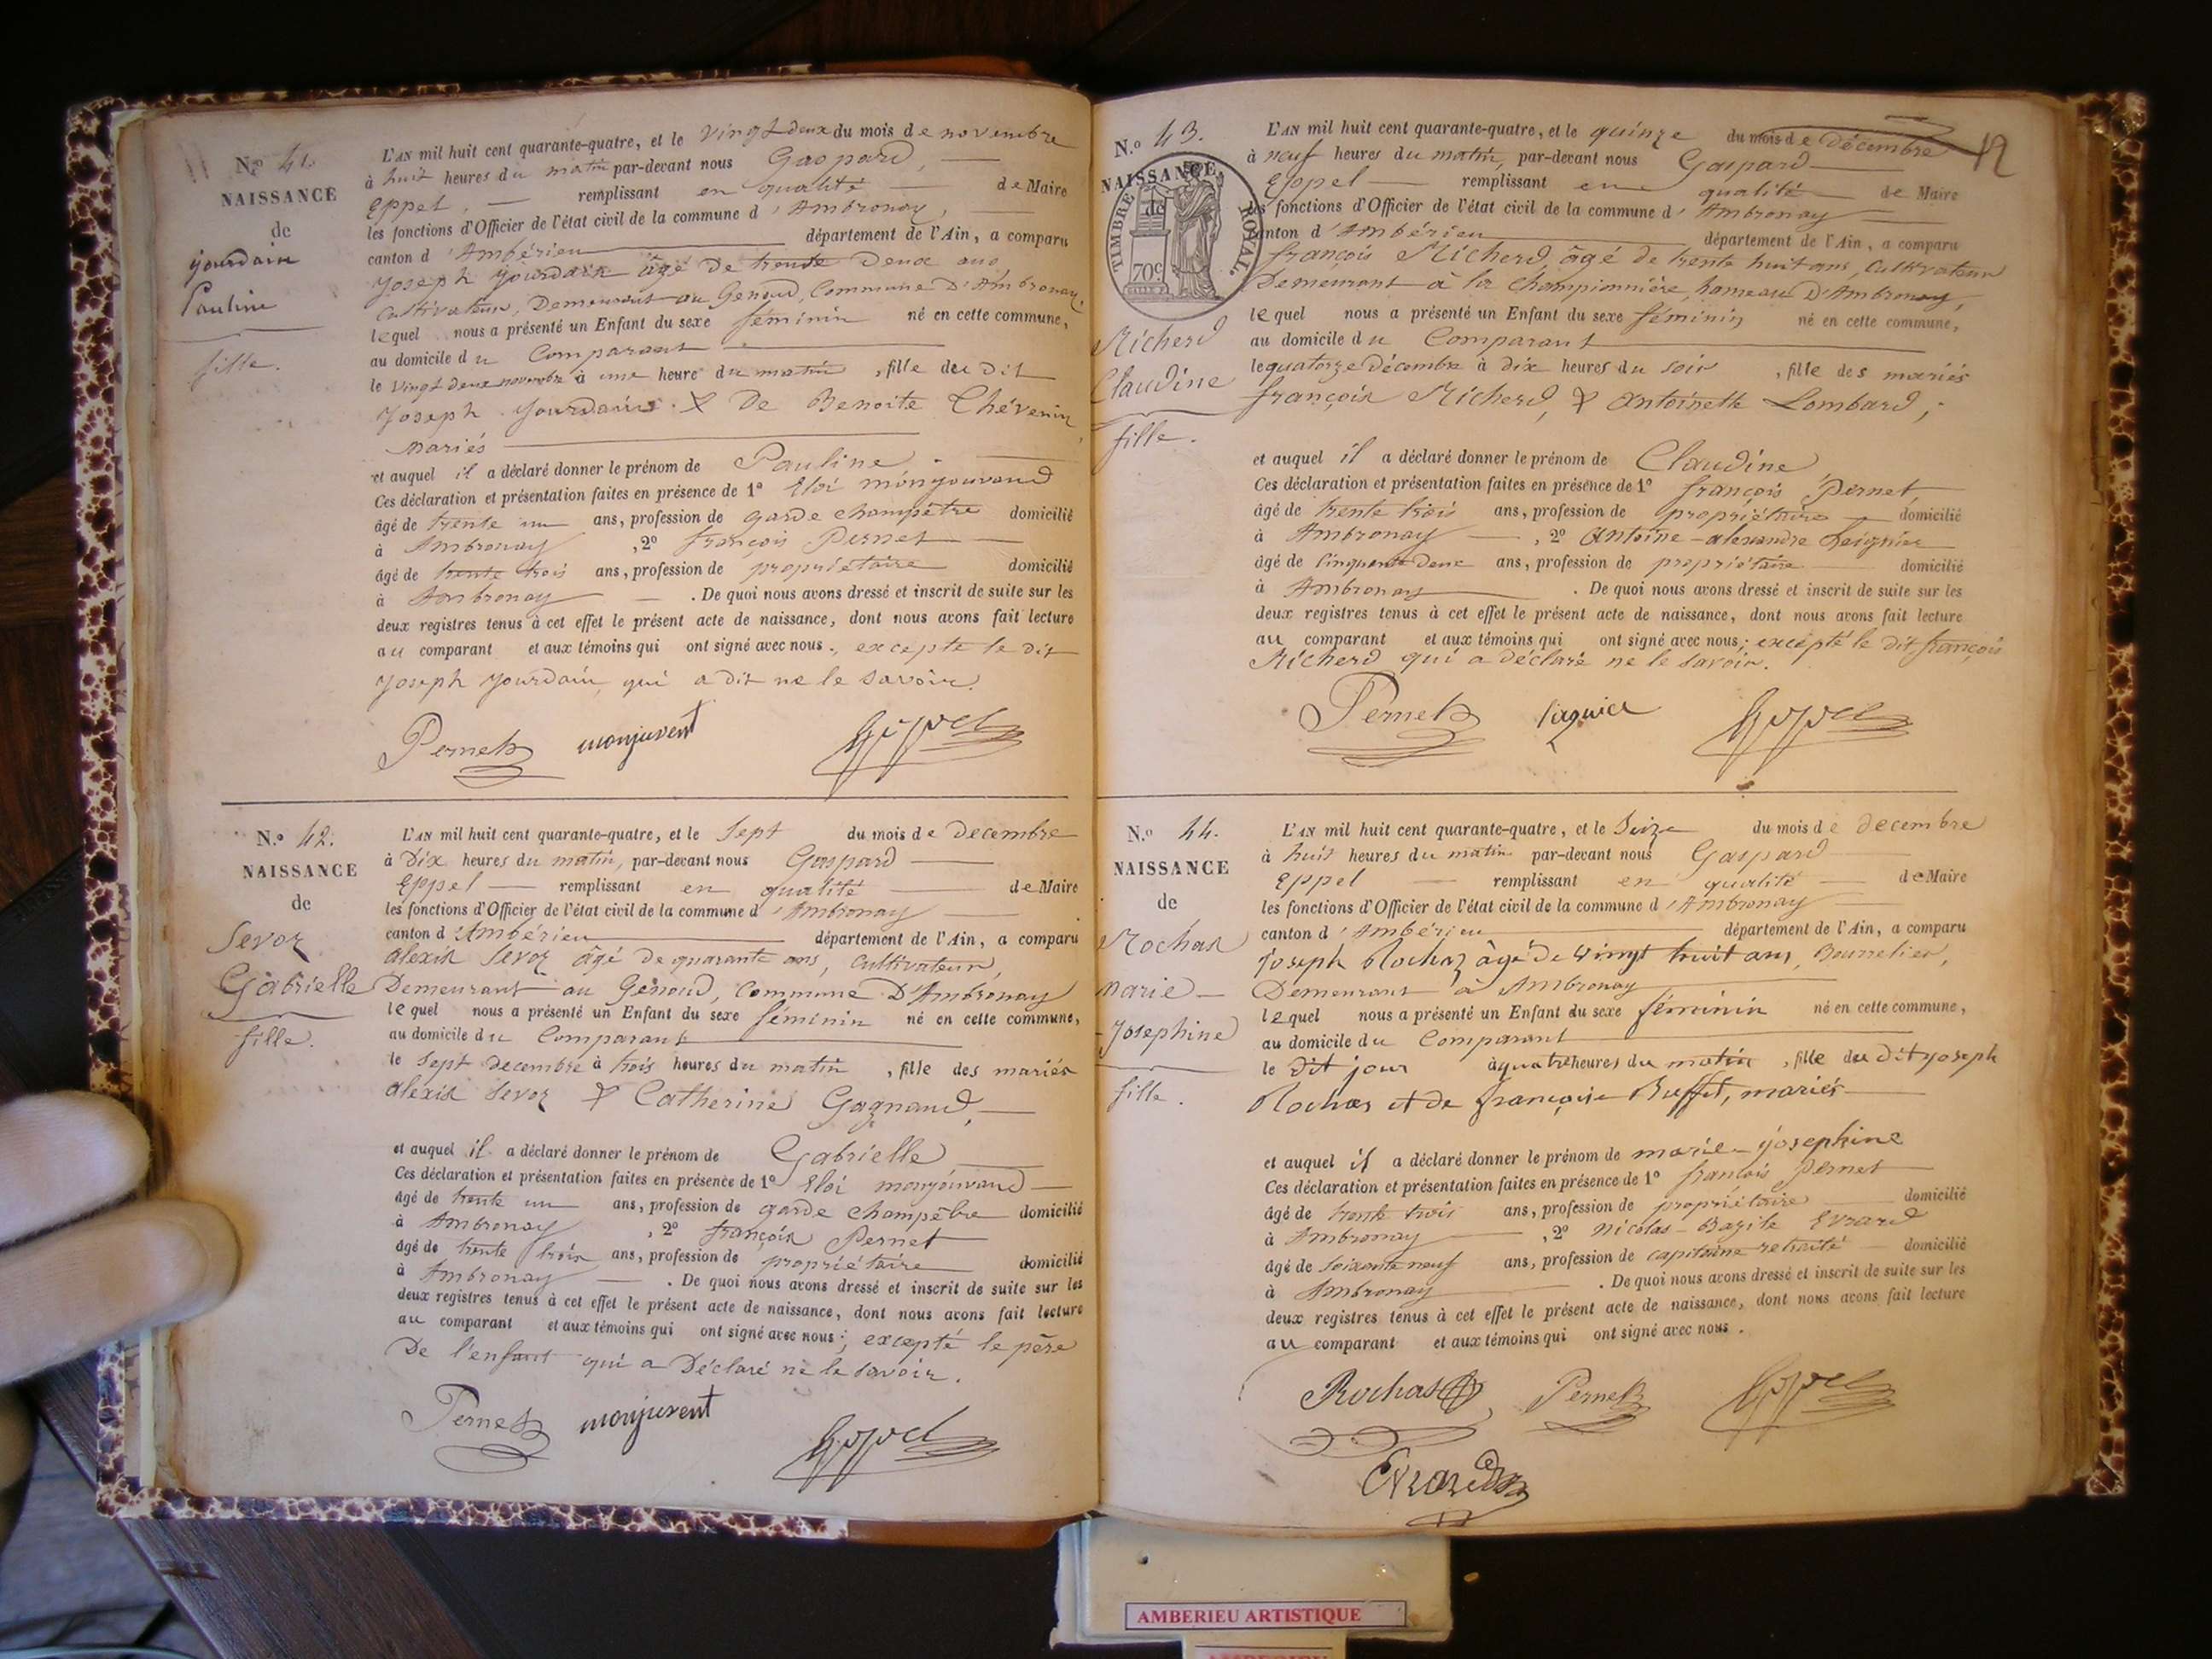 N.º 41.
NAISSANCE
de
yourdain
Pauline
fille.
L'AN mil huit cent quarante-quatre, et le vingt deux du mois de novembre
à huit heures du matin par-devant nous Gaspard,
Eppel, remplissant en qualité de Maire
les fonctions d'Officier de l'état civil de la commune d'Ambronay,
canton d'Ambérieu département de l'Ain, a comparu
Joseph yourdain âgé de trente deux ans
Cultivateur, Demeurant au Genoud, Commune D'Ambronay,
lequel nous a présenté un Enfant du sexe féminin né en cette commune,
au domicile du Comparant
le vingt deux novembre à une heure du matin, fille du dit
Joseph yourdain & De Benoite Thévenin,
mariés
et auquel il a déclaré donner le prénom de Pauline
Ces déclaration et présentation faites en présence de 1º Eloi monjouvand
âgé de trente un ans, profession de garde champêtre domicilié
à Ambronay, 2º françois Pernet
âgé de trente trois ans, profession de propriétaire domicilié
à Ambronay. De quoi nous avons dressé et inscrit de suite sur les
deux registres tenus à cet effet le présent acte de naissance, dont nous avons fait lecture
au comparant et aux témoins qui ont signé avec nous, excepte le dit
Joseph yourdain, qui a dit ne le savoir.
Pernet monjuvent Eppel
N.º 42.
NAISSANCE
de
Sevoz
Gabrielle
fille.
L'AN mil huit cent quarante-quatre, et le Sept du mois de decembre
à Dix heures du matin, par-devant nous Gaspard
Eppel remplissant en qualité de Maire
les fonctions d'Officier de l'état civil de la commune d'Ambronay
canton d'Ambérieu département de l'Ain, a comparu
alexis Sevoz âgé de quarante ans, Cultivateur,
Demeurant au Genoud, Commune D'Ambronay
lequel nous a présenté un Enfant du sexe féminin né en cette commune,
au domicile du Comparant
le Sept decembre à trois heures du matin, fille des mariés
alexis Sevoz & Catherine Gagnaud,
et auquel il a déclaré donner le prénom de Gabrielle
Ces déclaration et présentation faites en présence de 1º Eloi monjouvand
âgé de trente un ans, profession de garde champêtre domicilié
à Ambronay, 2º françois Pernet
âgé de trente trois ans, profession de propriétaire domicilié
à Ambronay. De quoi nous avons dressé et inscrit de suite sur les
deux registres tenus à cet effet le présent acte de naissance, dont nous avons fait lecture
au comparant et aux témoins qui ont signé avec nous; excepté le père
De l'enfant qui a Déclaré ne le savoir.
Pernet monjuvent Eppel
12
N.º 43.
NAISSANCE
de
TIMBRE ROYAL.
70c
Richerd
Claudine
fille.
L'AN mil huit cent quarante-quatre, et le quinze du mois de décembre
à neuf heures du matin, par-devant nous Gaspard
Eppel remplissant en qualité de Maire
les fonctions d'Officier de l'état civil de la commune d'Ambronay
canton d'Ambérieu département de l'Ain, a comparu
françois Richerd, âgé de trente huit ans, Cultivateur
Demeurant à la Championnière, hameau D'Ambronay,
lequel nous a présenté un Enfant du sexe féminin né en cette commune,
au domicile du Comparant
le quatorze décembre à dix heures du soir, fille des mariés
françois Richerd, & Antoinette Lombard,;
et auquel il a déclaré donner le prénom de Claudine
Ces déclaration et présentation faites en présence de 1º françois Pernet,
âgé de trente trois ans, profession de propriétaire domicilié
à Ambronay, 2º Antoine-alexandre
âgé de Cinquante Deux ans, profession de propriétaire domicilié
à Ambronay. De quoi nous avons dressé et inscrit de suite sur les
deux registres tenus à cet effet le présent acte de naissance, dont nous avons fait lecture
au comparant et aux témoins qui ont signé avec nous; excepté le dit françois
Richerd qui a déclaré ne le savoir.
Pernet Eppel
N.º 44.
NAISSANCE
de
Rochas
Marie-
Josephine
fille.
L'AN mil huit cent quarante-quatre, et le Seize du mois de decembre
à huit heures du matin par-devant nous Gaspard
Eppel remplissant en qualité de Maire
les fonctions d'Officier de l'état civil de la commune d'Ambronay
canton d'Ambérieu département de l'Ain, a comparu
Joseph Rochas âgé de vingt huit ans, Bourrelier,
Demeurant à Ambronay
lequel nous a présenté un Enfant du sexe féminin né en cette commune,
au domicile du Comparant
le dit jour à quatre heures du matin, fille du dit Joseph
Rochas et de françoise Buffet, mariés
et auquel il a déclaré donner le prénom de marie-josephine
Ces déclaration et présentation faites en présence de 1º françois Pernet
âgé de trente trois ans, profession de propriétaire domicilié
à Ambronay, 2º Nicolas-Bazile Evrard
âgé de soixante neuf ans, profession de capitaine retraité domicilié
à Ambronay. De quoi nous avons dressé et inscrit de suite sur les
deux registres tenus à cet effet le présent acte de naissance, dont nous avons fait lecture
au comparant et aux témoins qui ont signé avec nous.
Rochas Pernet Eppel
Evrard
AMBERIEU ARTISTIQUE
AMBERIEU